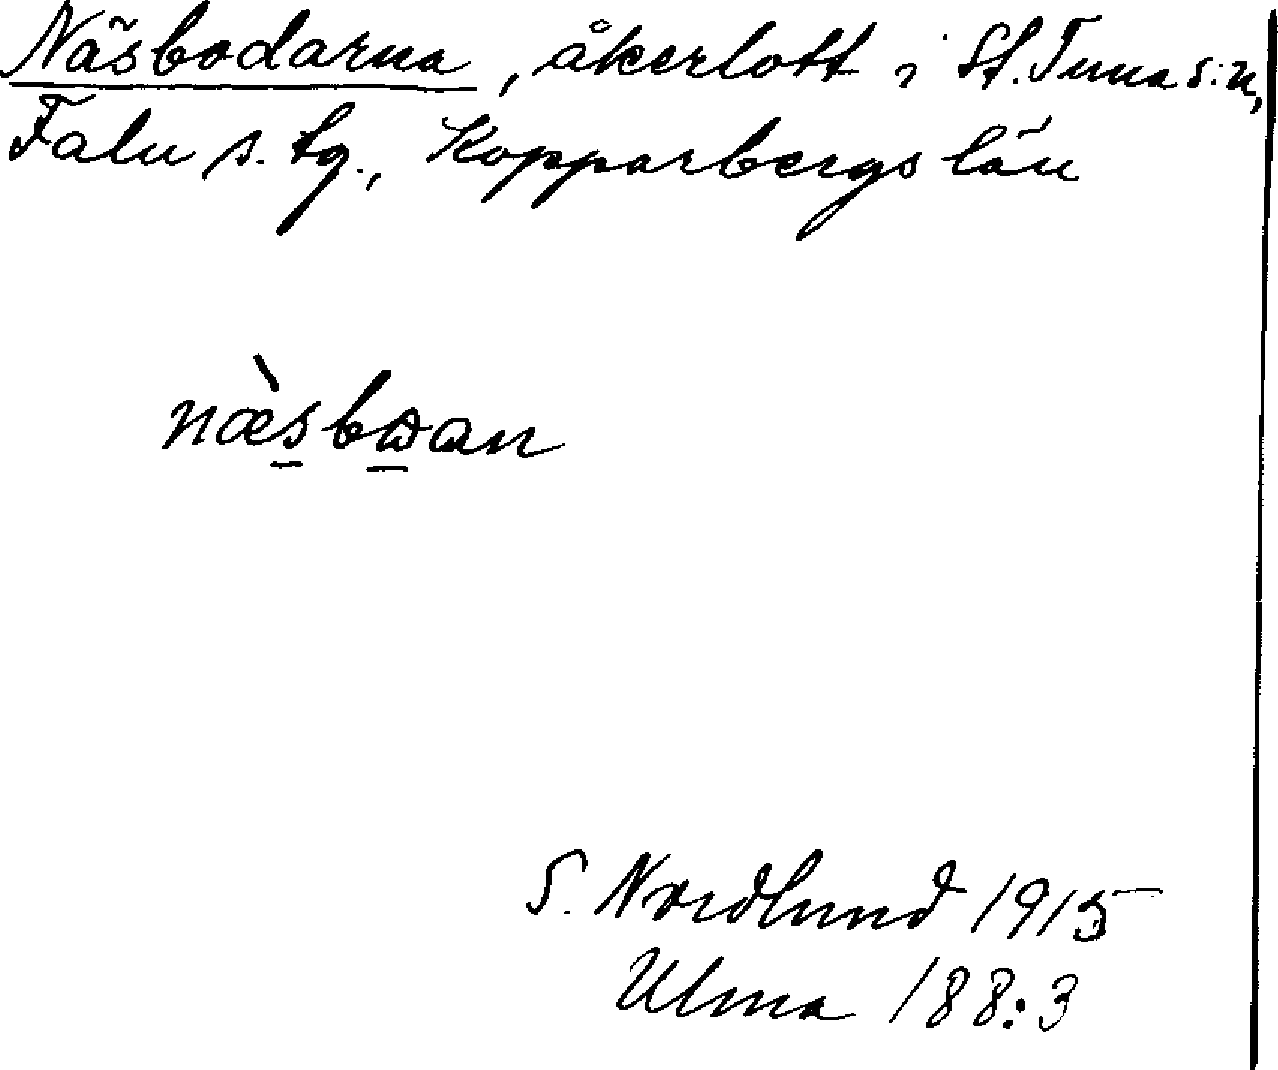 Näsbodarna, åkerlott i St. Tuna s:n,
Falu s. tg., Kopparbergs län
næ̀s̲bꙍ̲an
S. Nordlund 1915
Ulma 188:3